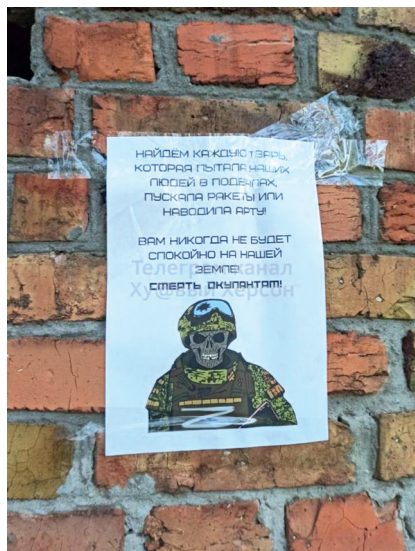 НАЙДЕМ КАЖДУЮ ТВАРЬ,
КОТОРАЯ ПЫТАЛА НАШИХ
ЛЮДЕЙ В ПОДВАЛАХ,
ПУСКАЛА РАКЕТЫ ИЛИ
НАВОДИЛА АРТУ!
ВАМ НИКОГДА НЕ БУДЕТ
СПОКОЙНО НА НАШЕЙ
ЗЕМЛЕ!
Телеграм канал
СМЕРТЬ ОКУПАНТАМ!
Ху@вый Херсон
Z